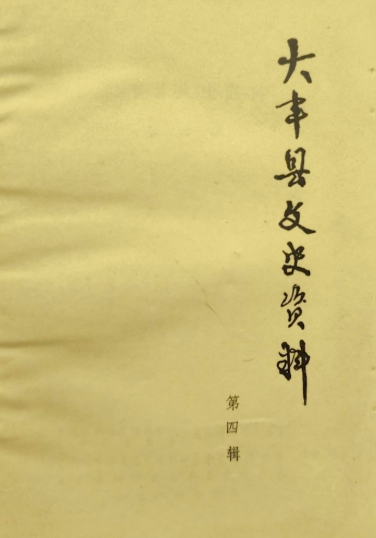 大丰县文史资料
第四辑